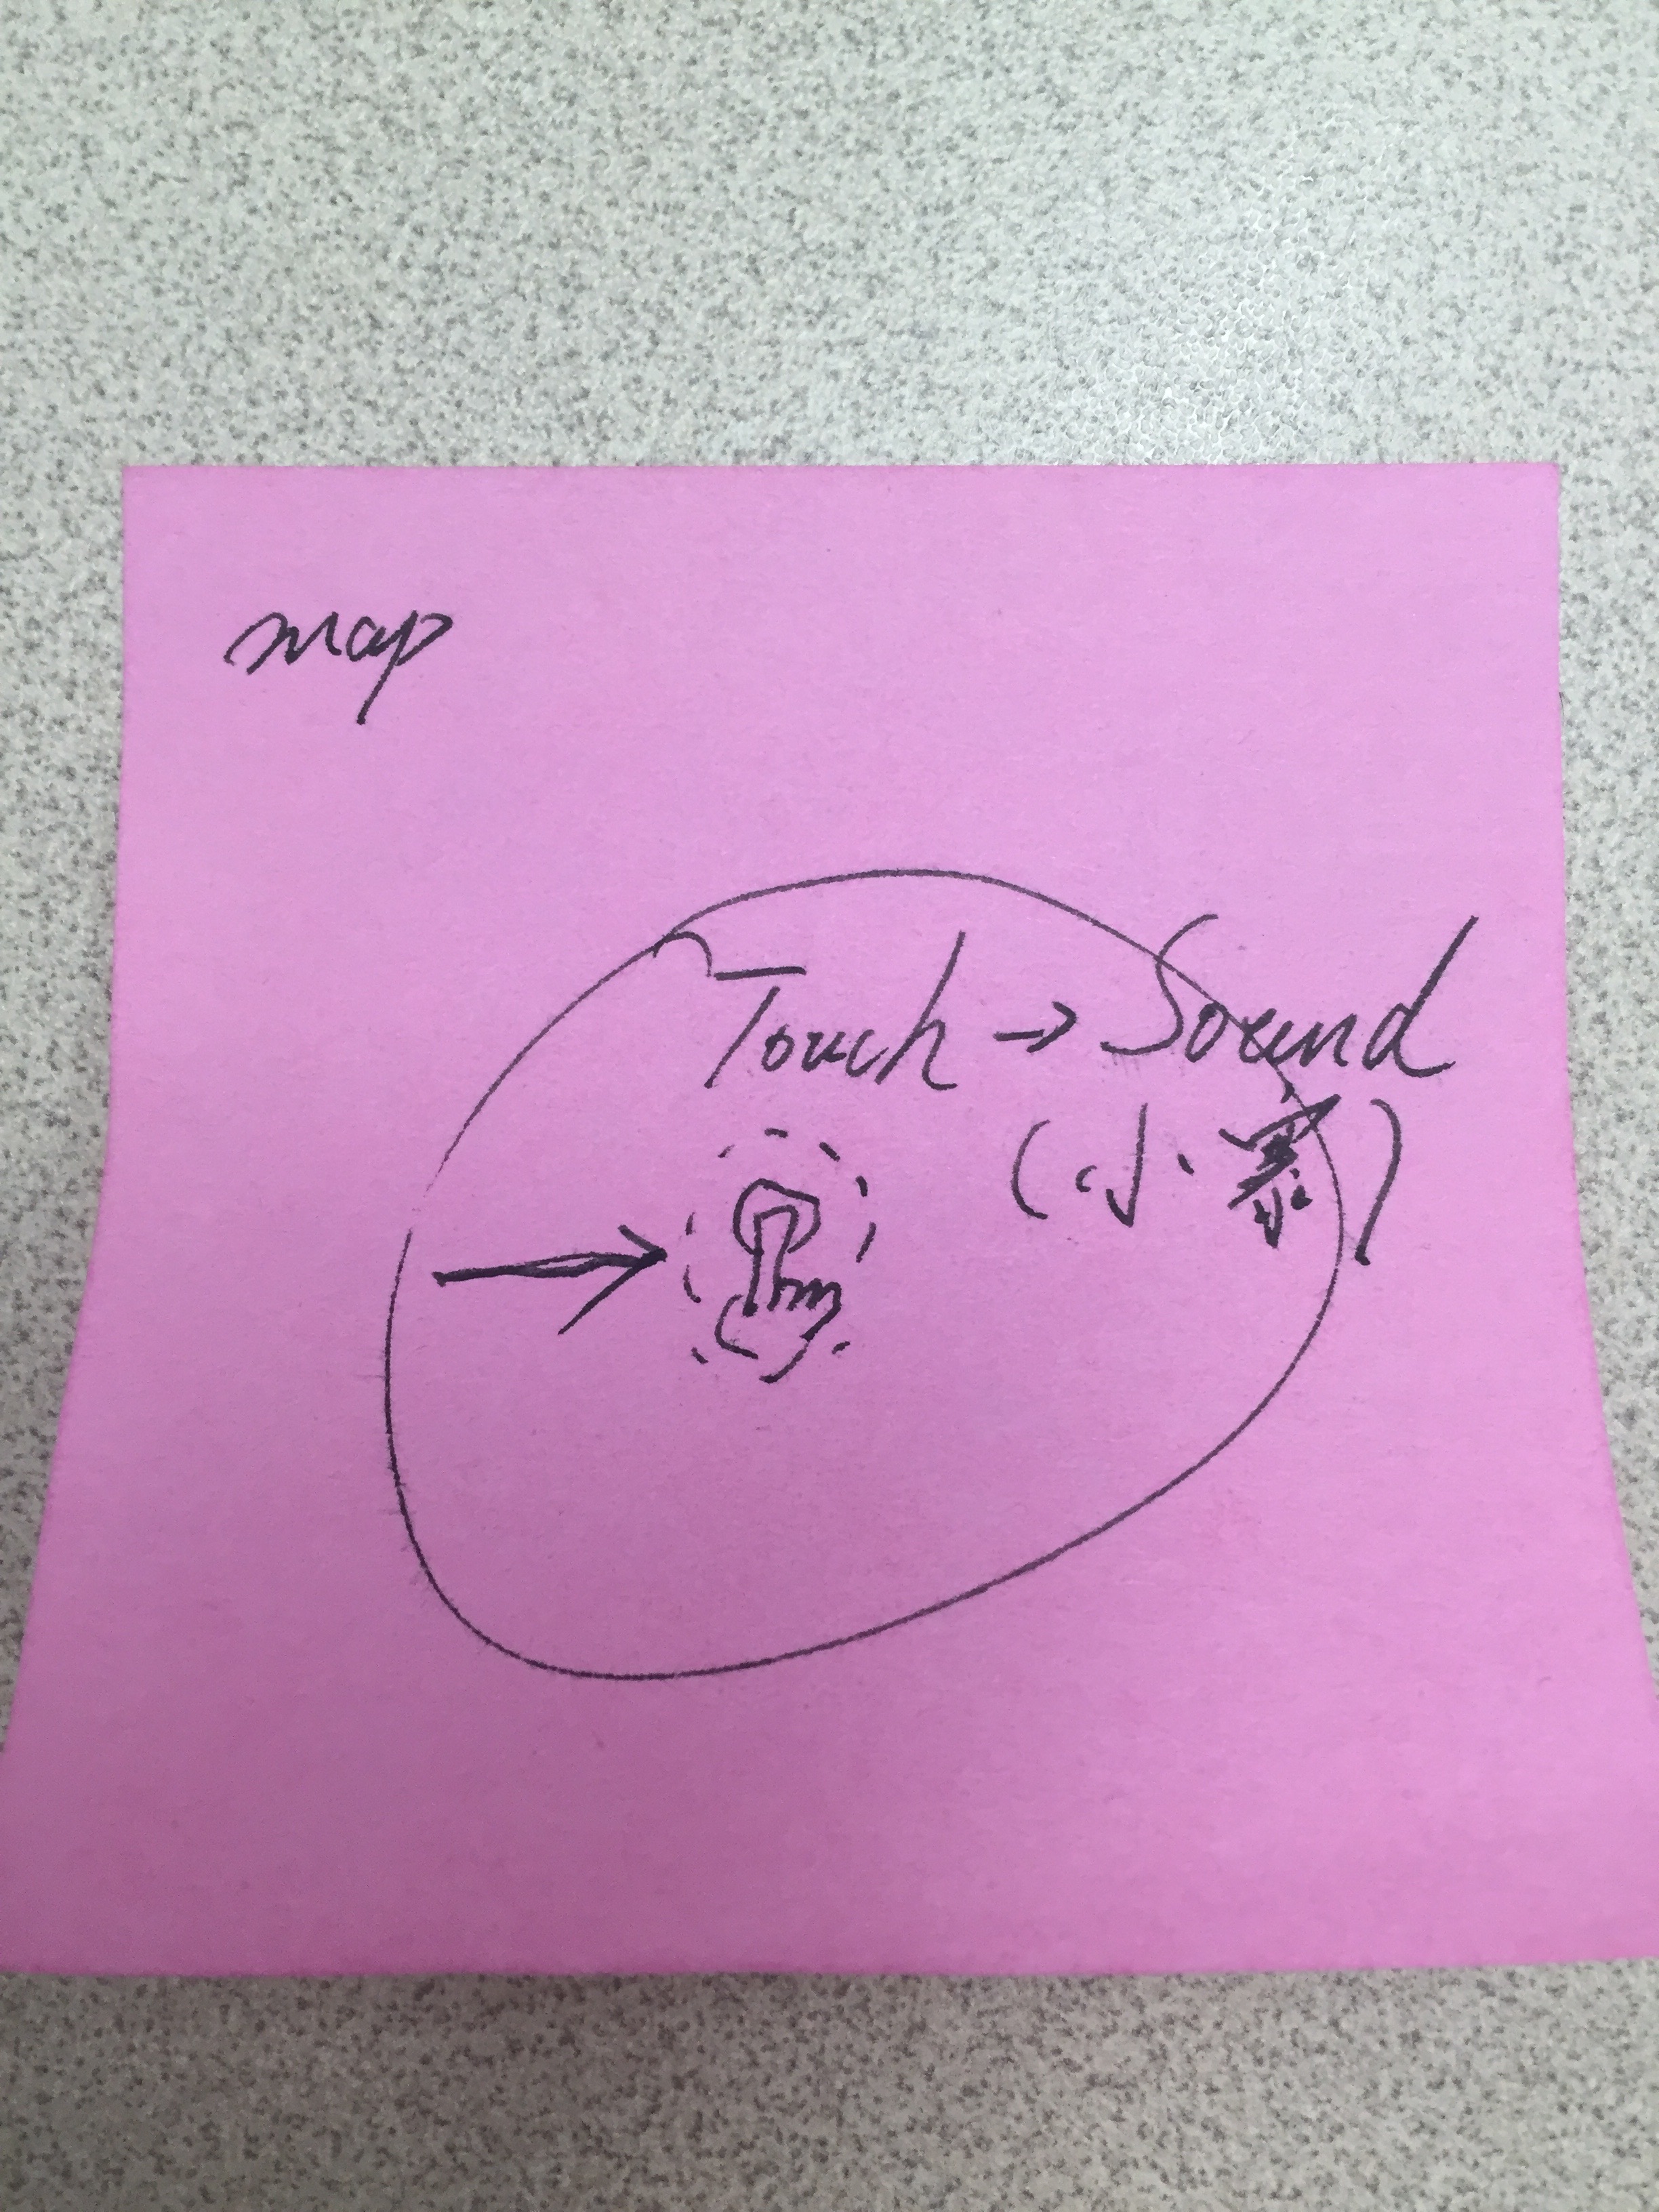 map
Touch → Sound
(小